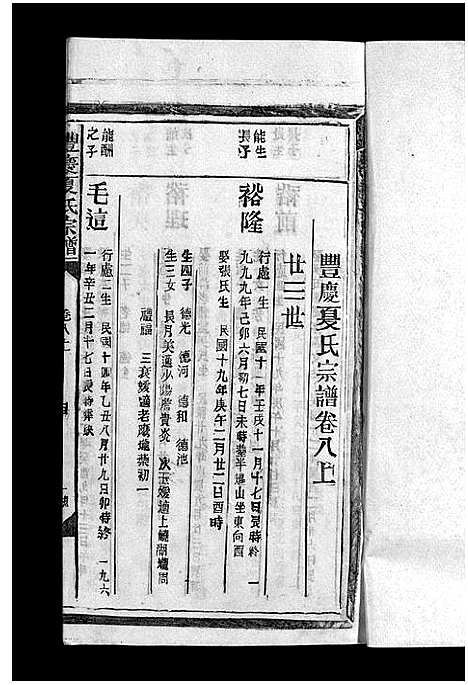 豐慶夏氏宗譜卷八上
廿三世
能生
長子
裕隆
行處一生 民國十一年壬戌十一月十七日辰時終 一
九九九年己卯六月初七日未時葬半邊山坐東向西
娶張氏生 民國十九年庚午二月廿二日酉時
生四子 德光 德河 德和 德池
生三女 長月美適少陽 貴炎 次玉嫒適上 湖壪周
禮福 三袞嫒適老屋壪蔡初一
能酬
之子
毛這
行處二生 民國十四年乙丑八月廿九日卯時終 一九六
一年辛丑二月十七日辰時葬
豐慶夏氏宗譜
卷八上